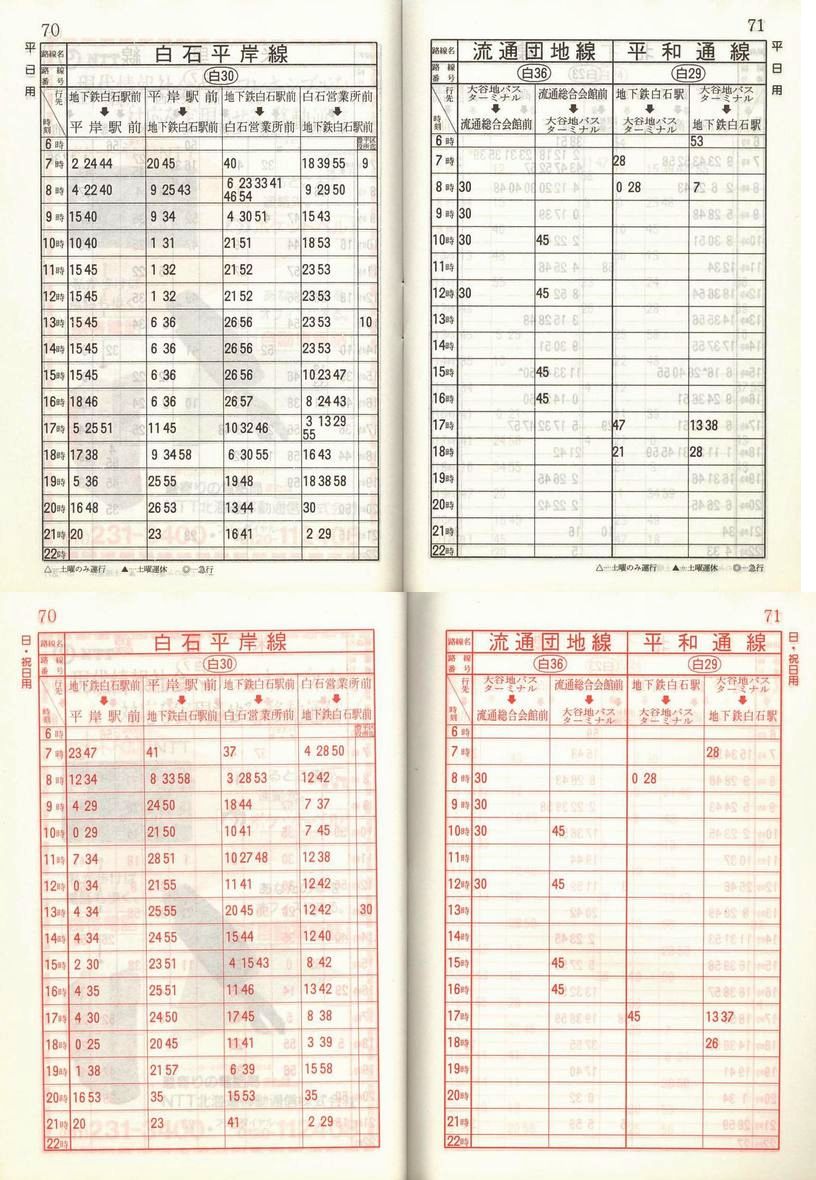 70
平日用
路線名 白石平岸線
路線番号 白30
行先 地下鉄白石駅前 平岸駅前 地下鉄白石駅前 白石営業所前
時刻 平岸駅前 地下鉄白石駅前 白石営業所前 地下鉄白石駅前
6時
7時 2 24 44 20 45 40 18 39 55 9
8時 4 22 40 9 25 43 6 23 33 41 46 54 9 29 50
9時 15 40 9 34 4 30 51 15 43
10時 10 40 1 31 21 51 18 53
11時 15 45 1 32 21 52 23 53
12時 15 45 1 32 21 52 23 53
13時 15 45 6 36 26 56 23 53 10
14時 15 45 6 36 26 56 23 53
15時 15 45 6 36 26 56 10 23 47
16時 18 46 6 36 26 57 8 24 43
17時 5 25 51 11 45 10 32 46 3 13 29 55
18時 17 38 9 34 58 6 30 55 16 43
19時 5 36 25 55 19 48 18 38 58
20時 16 48 26 53 13 44 30
21時 20 23 16 41 2 29
22時
△…土曜のみ運行 ▲…土曜運休 ◎…急行
71
平日用
路線名 流通団地線 平和通線
路線番号 白36 白29
行先 大谷地バスターミナル 流通総合会館前 地下鉄白石駅 大谷地バスターミナル
時刻 流通総合会館前 大谷地バスターミナル 大谷地バスターミナル 地下鉄白石駅
6時 53
7時 28
8時 30 0 28 7
9時 30
10時 30 45
11時
12時 30 45
13時
14時
15時 45
16時 45
17時 47 13 38
18時 21 28
19時
20時
21時
22時
△…土曜のみ運行 ▲…土曜運休 ◎…急行
70
日・祝日用
路線名 白石平岸線
路線番号 白30
行先 地下鉄白石駅前 平岸駅前 地下鉄白石駅前 白石営業所前
時刻 平岸駅前 地下鉄白石駅前 白石営業所前 地下鉄白石駅前
6時
7時 23 47 41 37 4 28 50
8時 12 34 8 33 58 3 28 53 12 42
9時 4 29 24 50 18 44 7 37
10時 0 29 21 50 10 41 7 45
11時 7 34 28 51 10 27 48 12 38
12時 0 34 21 55 11 41 12 42
13時 4 34 25 55 20 45 12 42 30
14時 4 34 24 55 15 44 12 40
15時 2 30 23 51 4 15 43 8 42
16時 4 35 25 51 11 46 13 42
17時 4 30 24 50 17 45 8 38
18時 0 25 20 45 11 41 3 39
19時 1 38 21 57 6 39 15 58
20時 16 53 35 15 53 35
21時 20 23 41 2 29
22時
71
日・祝日用
路線名 流通団地線 平和通線
路線番号 白36 白29
行先 大谷地バスターミナル 流通総合会館前 地下鉄白石駅 大谷地バスターミナル
時刻 流通総合会館前 大谷地バスターミナル 大谷地バスターミナル 地下鉄白石駅
6時
7時 28
8時 30 0 28
9時 30
10時 30 45
11時
12時 30 45
13時
14時
15時 45
16時 45
17時 45 13 37
18時 26
19時
20時
21時
22時